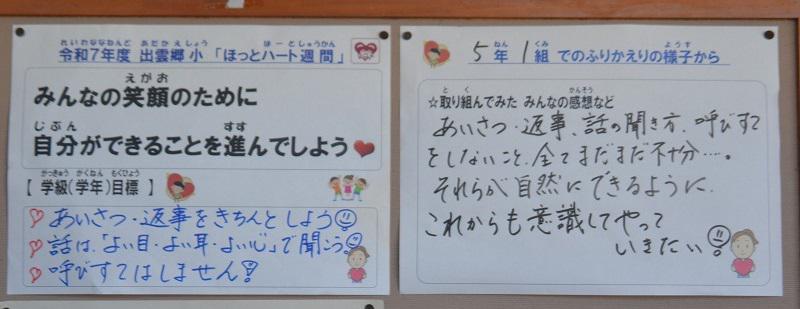 れいわななねんど あだかえしょう ほーとしゅうかん
令和7年度 出雲郷小 「ほっとハート週間」
えがお
みんなの笑顔のために
じぶん すす
自分ができることを進んでしよう
がっきゅう がくねん もくひょう
【 学級(学年)目標 】
あいさつ・返事をきちんとしよう
話は、「よい目・よい耳・よい心」で聞こう
呼びすてはしません!
ねん くみ ようす
5年 1組 でのふりかえりの様子から
と く かんそう
☆取り組んでみた みんなの感想など
あいさつ・返事、話の聞き方、呼びすて
をしないこと、全てまだまだ不十分…。
それらが自然にできるように、
これからも意識してやって
いきたい